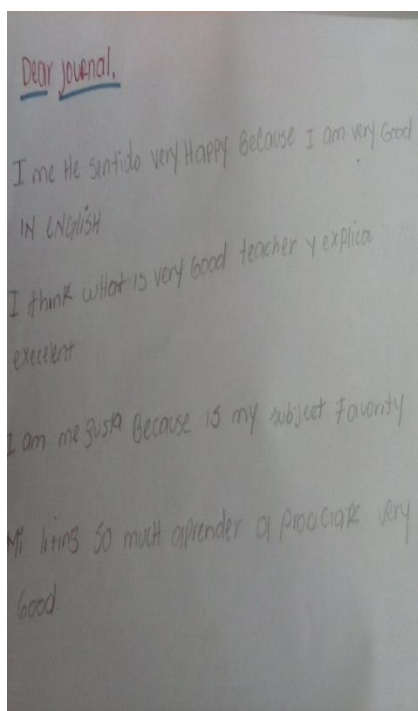 Dear journal.
I me He sentido very Happy Because I am very Good
IN ENGlisH
I think wHat is very Good teacher y explica
execelent
I am me gusta Because is my subject Favority
Mi so much aprender a very
Good.